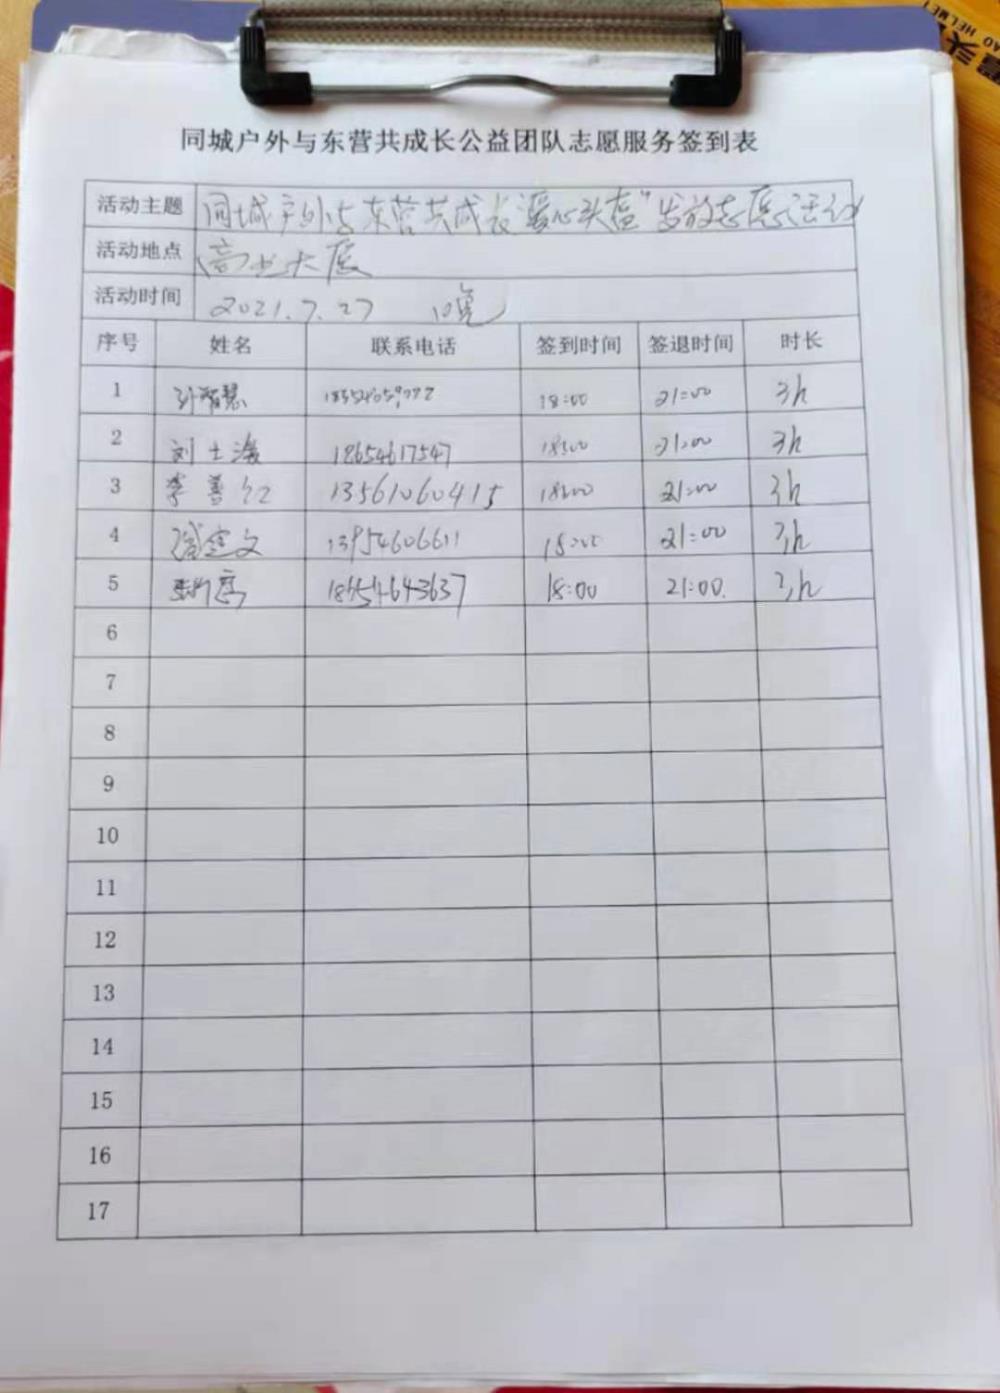 同城户外与东营共成长公益团队志愿服务签到表
活动主题 同城户外与东营共成长"爱心头盔"发放志愿活动
活动地点 商业大厦
活动时间 2021.7.27 晚
序号 姓名 联系电话 签到时间 签退时间 时长
1 孙智慧 18:00 21:00 3h
2 刘士海 18654617547 18:00 21:00 3h
3 李善红 13561060415 18:00 21:00 3h
4 13954606611 18:00 21:00 3h
5 18454643637 18:00 21:00. 3h
6
7
8
9
10
11
12
13
14
15
16
17